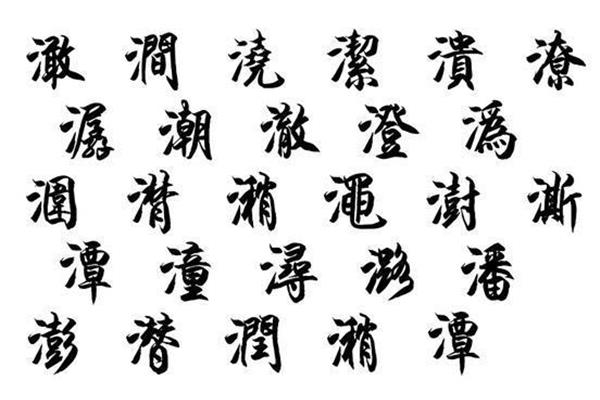 澉澗澆潔潰潦
潺潮澈澄潙
潿潸潲澠澍澌
潭潼潯潞潘
澎潛潤潲潭